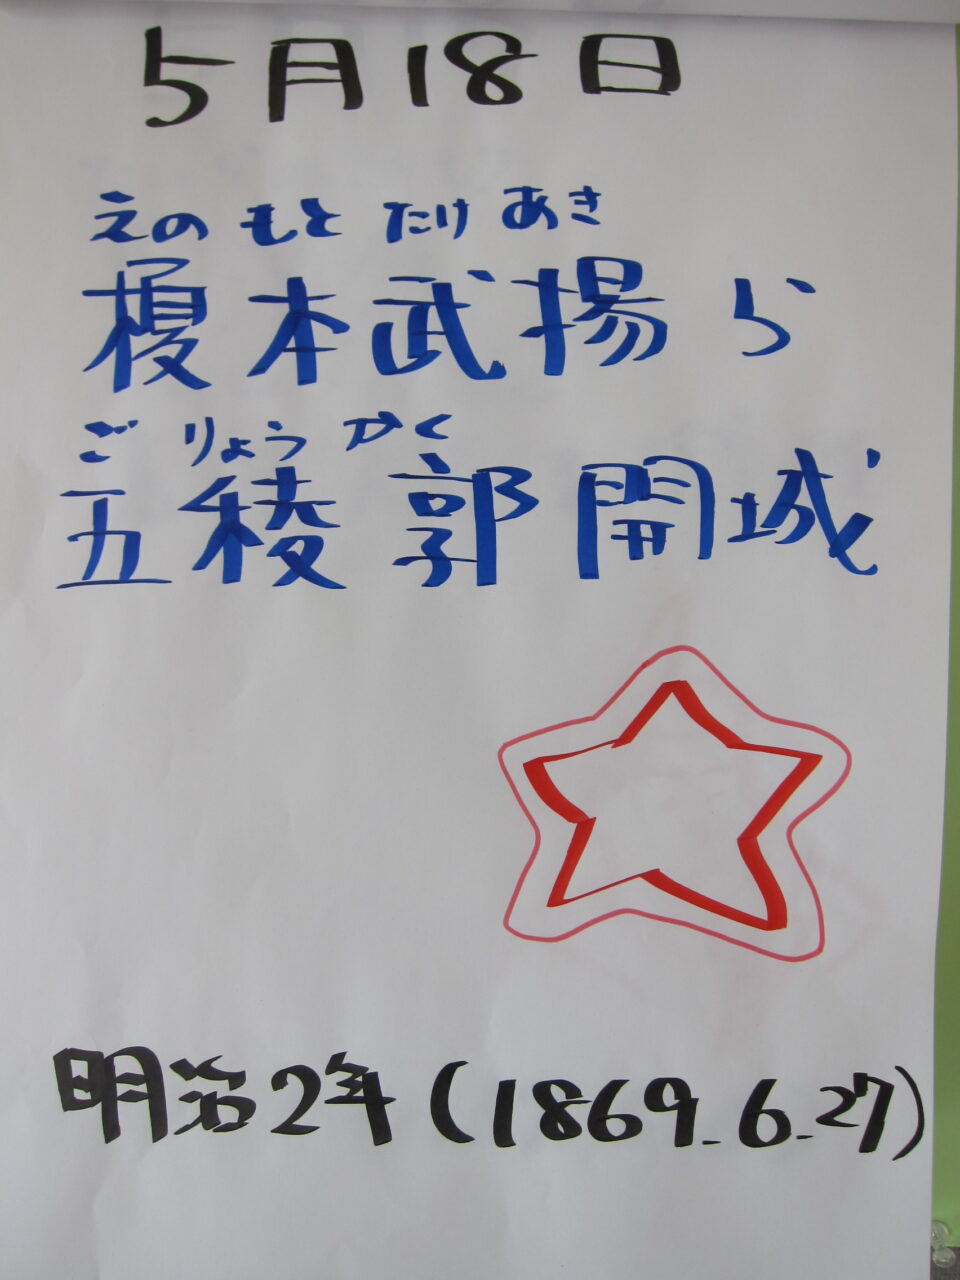 5月18日
えのもとたけあき
榎本武揚ら
ごりょうかく
五稜郭開城
明治2年(1869.6.27)